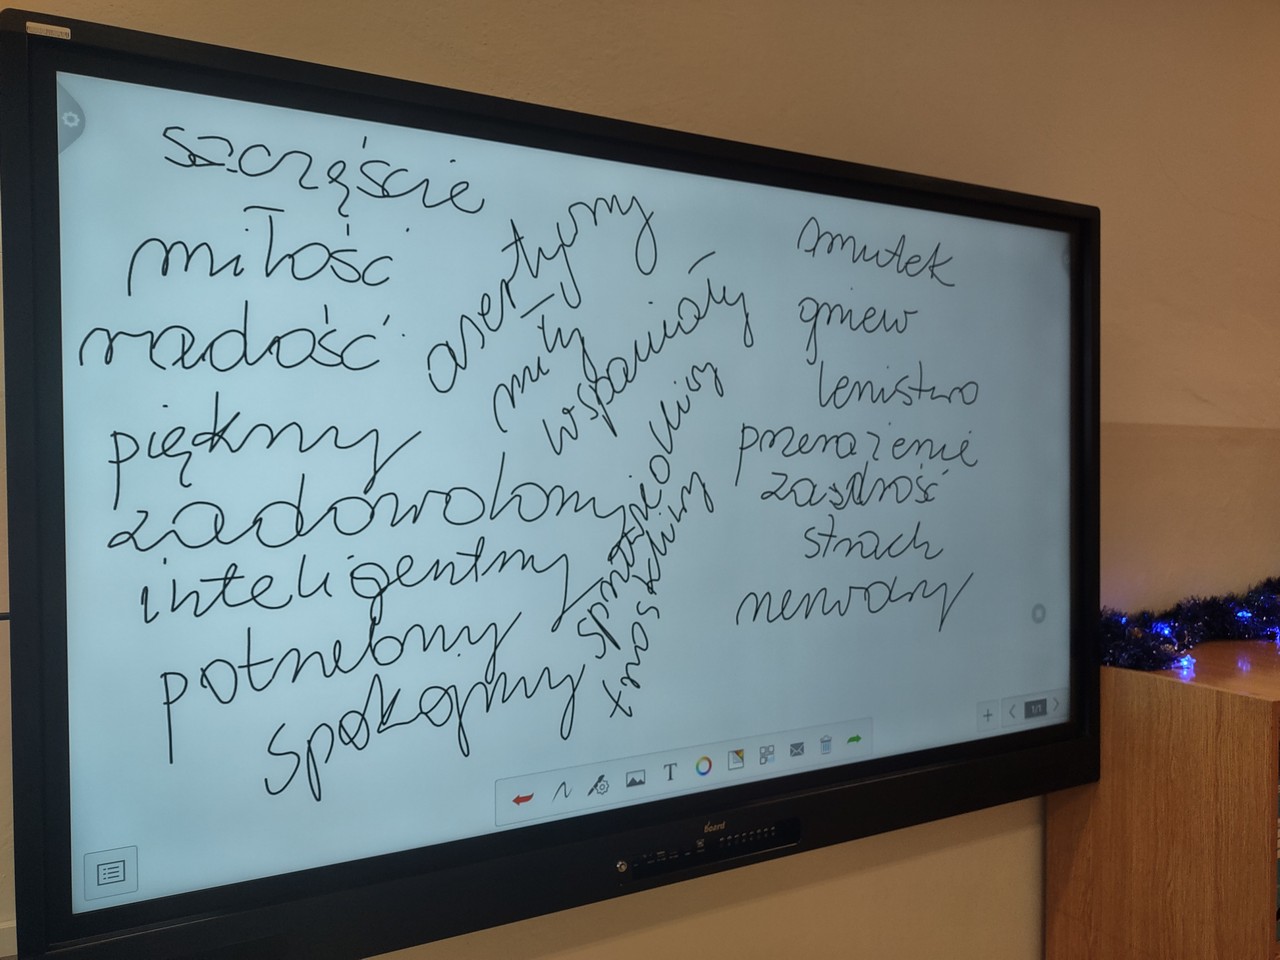 szczęście
miłość
radość
piękny
zadowolony
inteligentny
potrzebny
spokojny
asertywny
miły
wspaniały
sprawiedliwy
troskliwy
smutek
gniew
lenistwo
przerażenie
zazdrość
strach
nerwowy
T
1/1
board